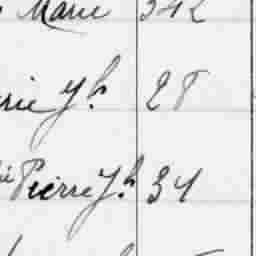 Marie 342
rie Yh 28
Pierre Yh 34